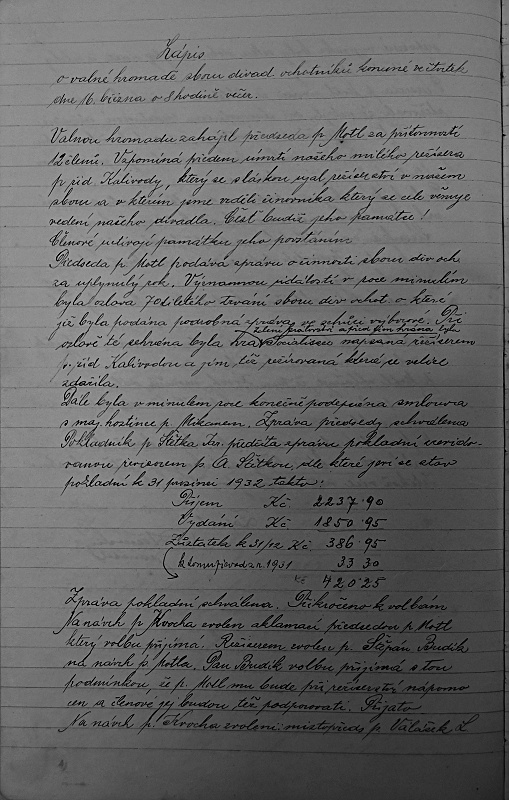 Zápis
o valné hromadě sboru divad. ochotníků konané ve čtvrtek
dne 16. března o 8 hodině večer.
Valnou hromadu zahájil předseda p. Motl za přítomnosti
12 členů. Vzpomíná předem úmrtí našeho milého režisera
p. říd. Kalivody, který se s láskou ujal režiserství v našem
sboru a v kterém jsme viděli činovníka který se cele věnuje
vedení našeho divadla. Čest budiž jeho památce!
Členové uctívají památku jeho povstáním
Předseda p. Motl podává zprávu o činnosti sboru div och
za uplynulý rok. Významnou událostí v roce minulém
byla oslava 70ti letého trvání sboru div ochot. o které
již byla podána podrobná zpráva ve schůzi výborové. Při
oslavě té sehrána byla hra Socialisace napsaná režiserem
p. říd Kalivodou a jím též režirovaná která se velice
zdařila.
Dále byla v minulém roce konečně podepsána smlouva
s maj. hostince p. Mikanem. Zpráva předsedy schválena
Pokladník p. Štětka Fr. přečítá zprávu pokladní zrevido-
vanou revisorem p. A. Štětkou, dle které jeví se stav
pokladní k 31 prosinci 1932 takto:
Příjem Kč. 2237.90
Vydání Kč 1850.95
Zůstatek k 31/12 Kč. 386.95
z r. 1931 33 30
Kč 420.25
Zpráva pokladní schválena. Přikročeno k volbám
Na návrh p. Krocha zvolen aklamací předsedou p. Motl
který volbu přijímá. Režiserem zvolen p. Štěpán Budík
na návrh p. Motla. Pan Budík volbu přijímá s tou
podmínkou, že p. Motl mu bude při režiserství nápomo
cen a členové jej budou též podporovati. Přijato
Na návrh p. Krocha zvoleni: místopředs p. Válášek L